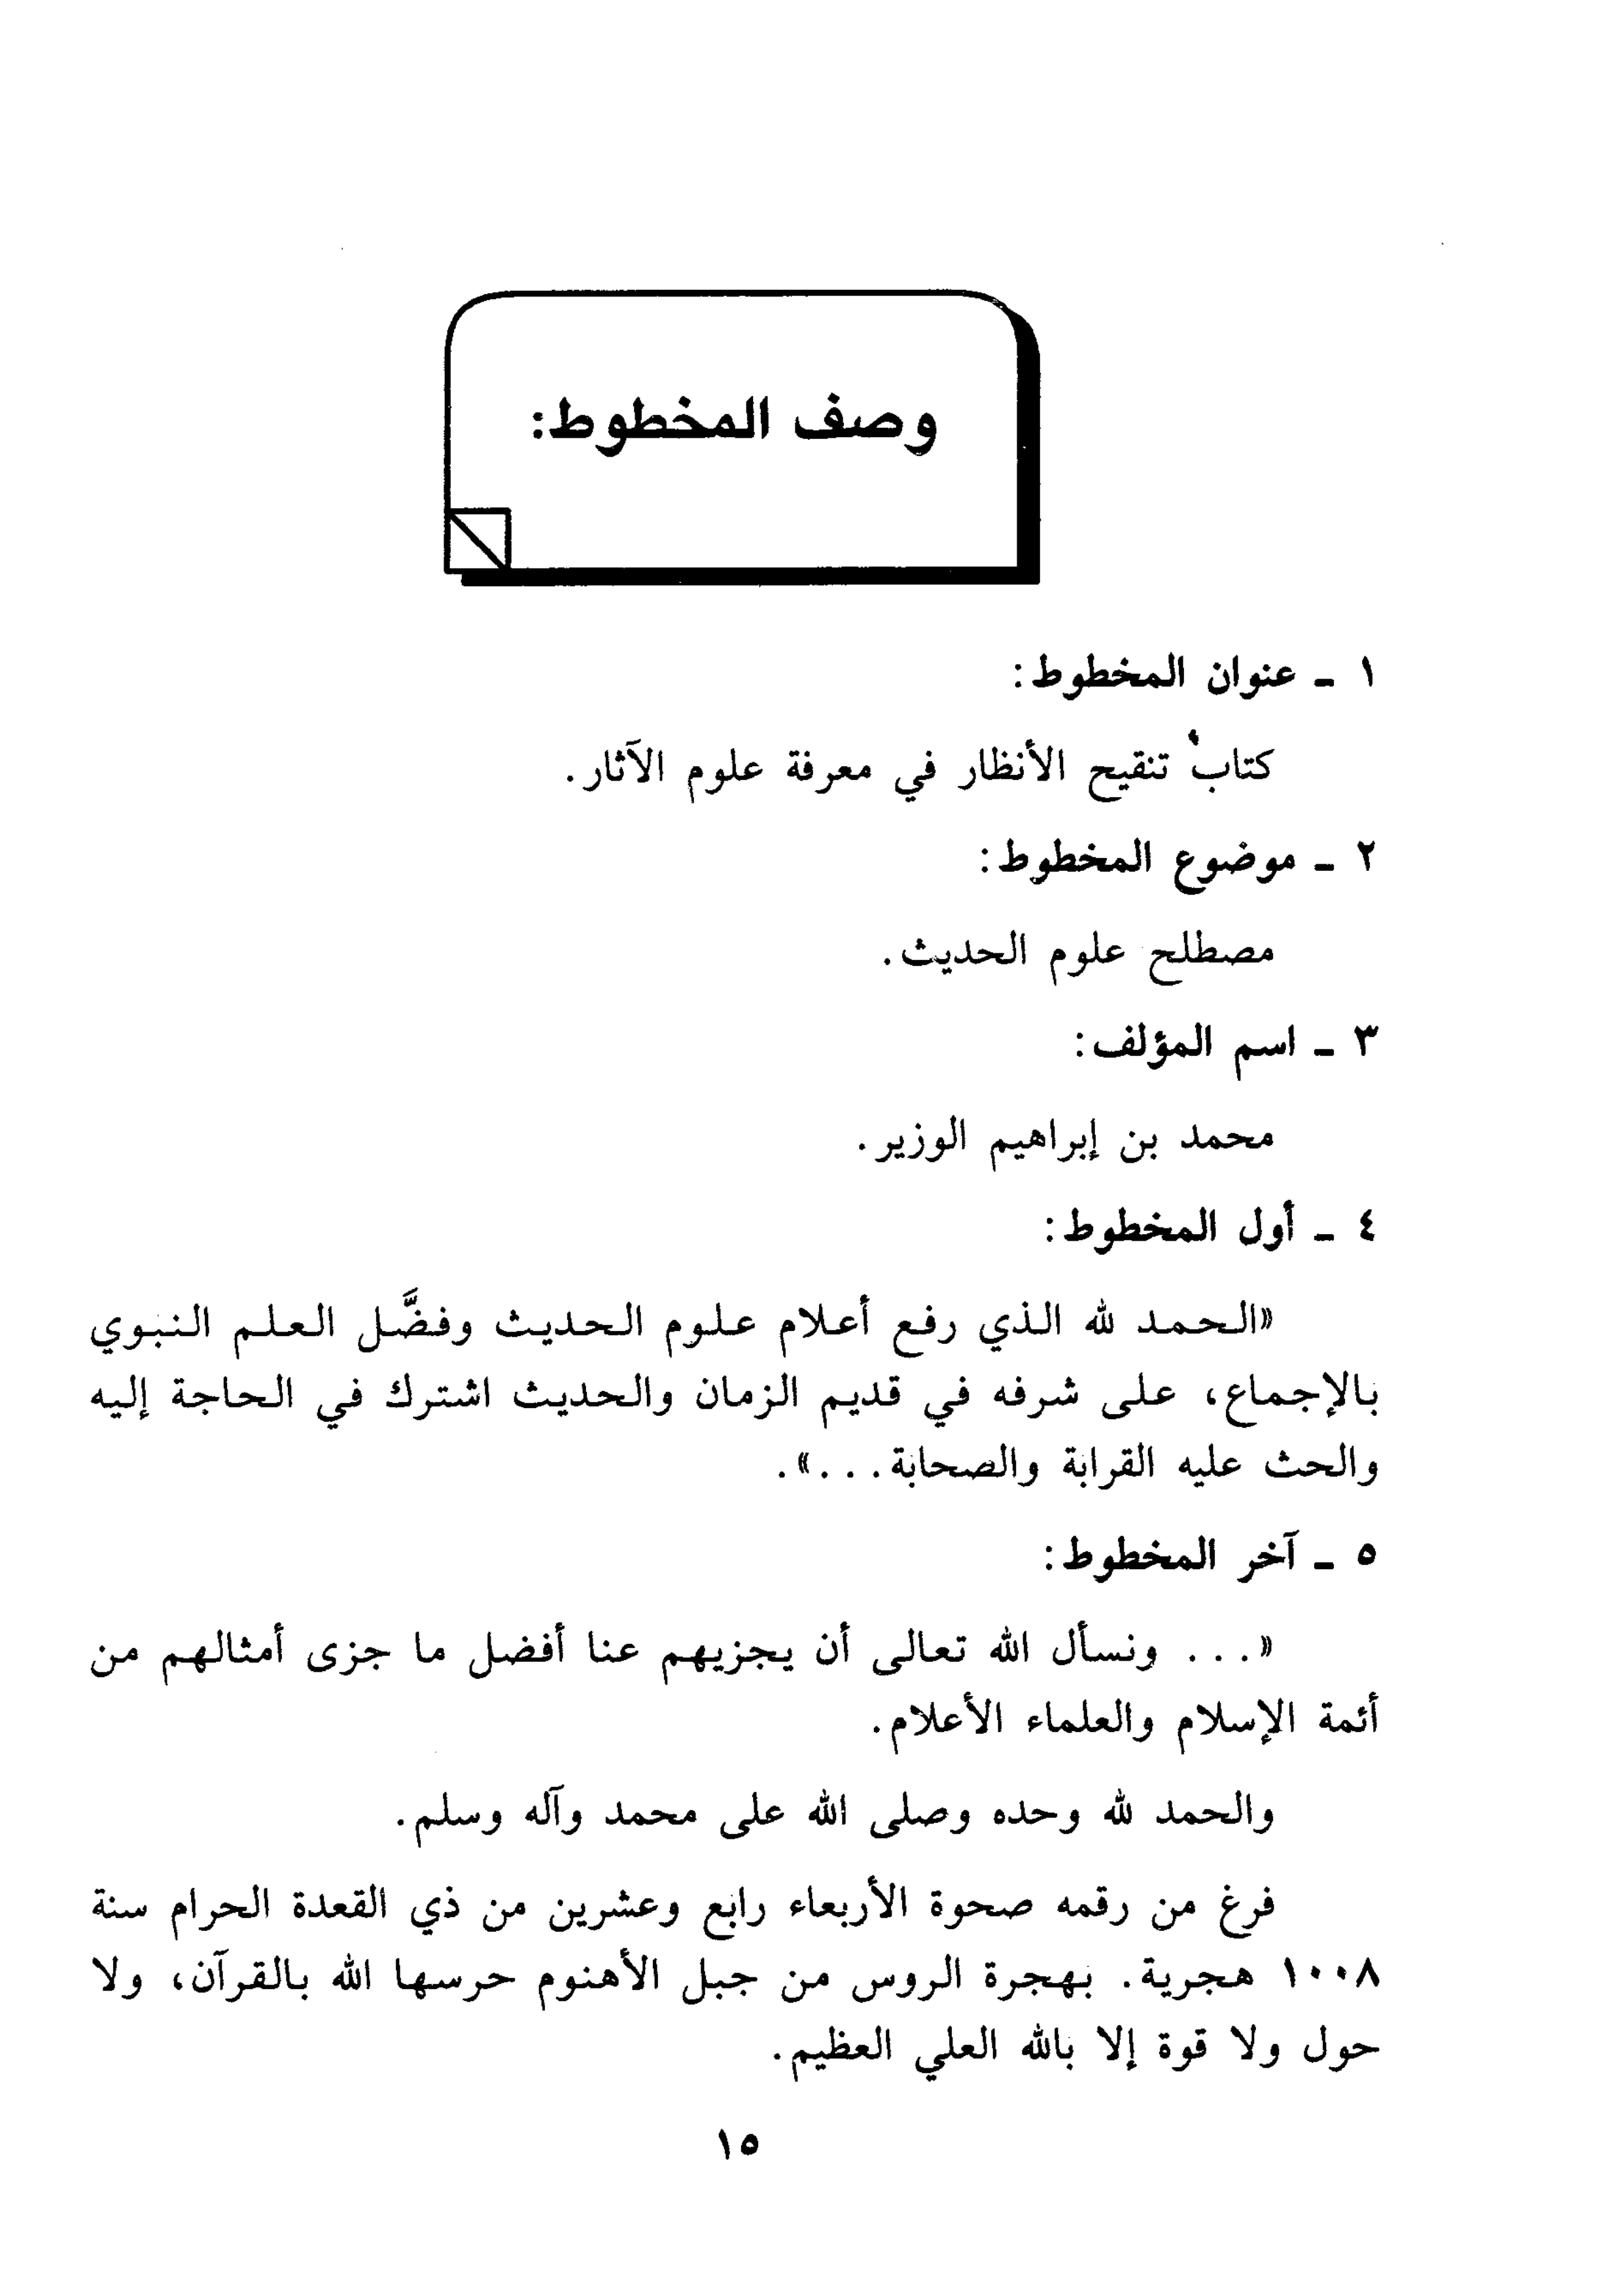 وصف المخطوط:
١ ـ عنوان المخطوط:
كتاب تنقيح الأنظار في معرفة علوم الآثار.
٢ ـ موضوع المخطوط:
مصطلح علوم الحديث.
٣ ـ اسم المؤلف:
محمد بن إبراهيم الوزير.
٤ ـ أول المخطوط:
«الحمد لله الذي رفع أعلام علوم الحديث وفضَّل العلم النبوي
بالإجماع، على شرفه في قديم الزمان والحديث اشترك في الحاجة إليه
والحث عليه القرابة والصحابة...».
٥ ـ آخر المخطوط:
«... ونسأل الله تعالى أن يجزيهم عنا أفضل ما جزى أمثالهم من
أئمة الإسلام والعلماء الأعلام.
والحمد لله وحده وصلى الله على محمد وآله وسلم.
فرغ من رقمه صحوة الأربعاء رابع وعشرين من ذي القعدة الحرام سنة
١٠٠٨ هجرية. بهجرة الروس من جبل الأهنوم حرسها الله بالقرآن، ولا
حول ولا قوة إلا بالله العلي العظيم.
١٥